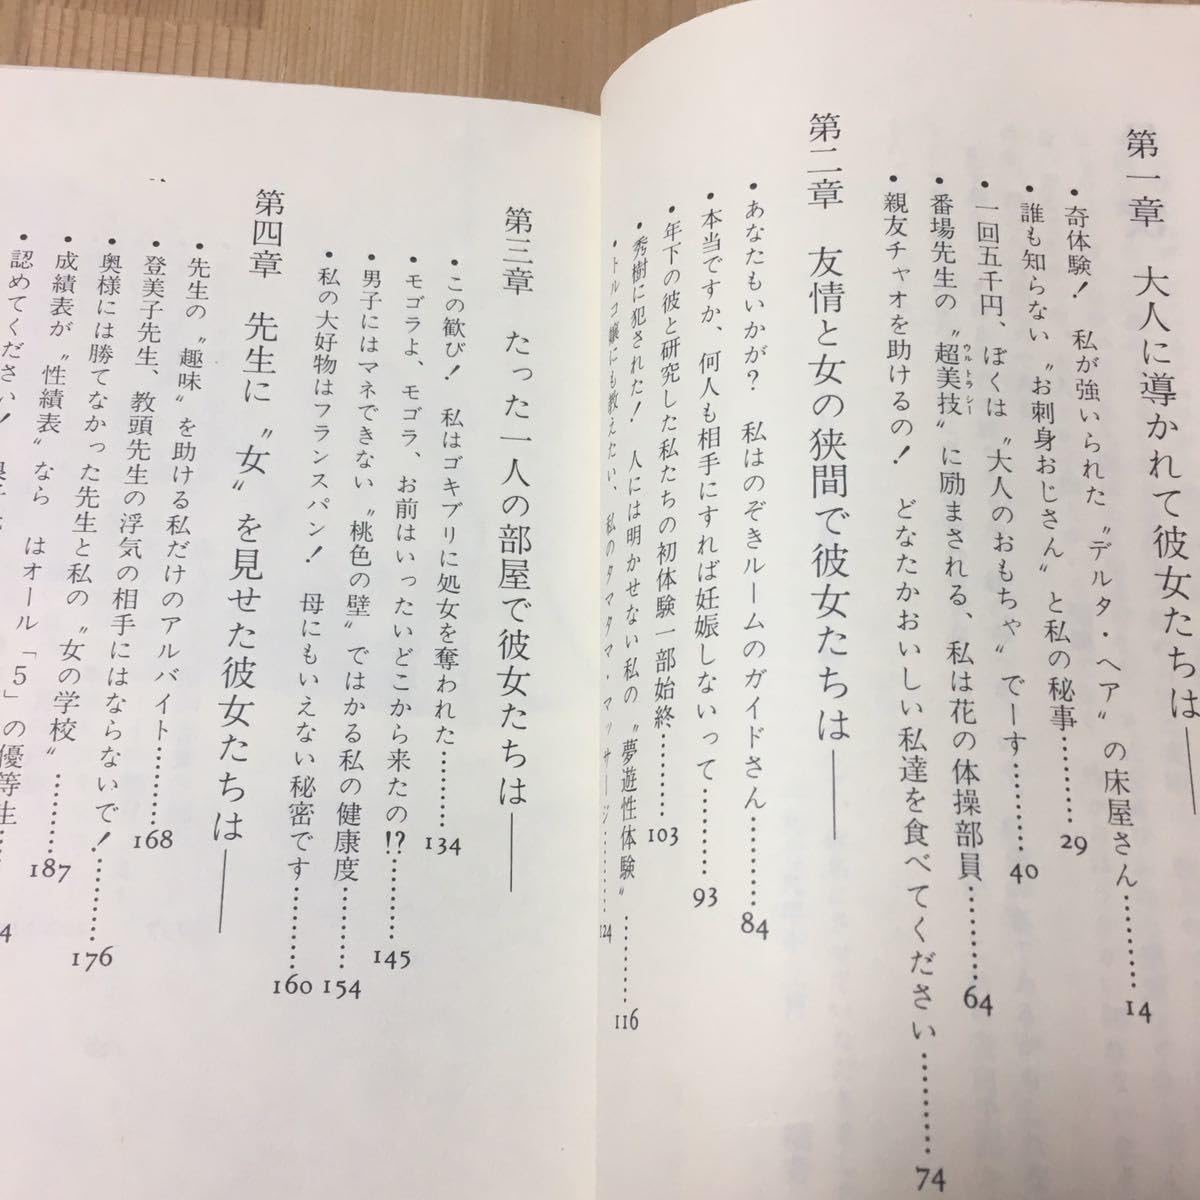 第一章　大人に導かれて彼女たちは――
・奇体験！　私が強いられた〝デルタ・ヘア〟の床屋さん…………14
・誰も知らない〝お刺身おじさん〟と私の秘事…………29
・一回五千円、ぼくは〝大人のおもちゃ〟でーす…………40
・番場先生の〝超美技〟に励まされる、私は花の体操部員…………64
ウルトラシー
・親友チャオを助けるの！　どなたかおいしい私達を食べてください…………74
第二章　友情と女の狭間で彼女たちは――
・あなたもいかが？　私はのぞきルームのガイドさん…………84
・本当ですか、何人も相手にすれば妊娠しないって…………93
・年下の彼と研究した私たちの初体験一部始終…………103
・秀樹に犯された！　人には明かせない私の〝夢遊性体験〟…………116
・トルコ嬢にも教えたい、私のタマタマ・マッサージ…………124
第三章　たった一人の部屋で彼女たちは――
・この歓び！　私はゴキブリに処女を奪われた…………134
・モゴラよ、モゴラ、お前はいったいどこから来たの!?…………145
・男子にはマネできない〝桃色の壁〟ではかる私の健康度…………154
・私の大好物はフランスパン！　母にもいえない秘密です…………160
第四章　先生に〝女〟を見せた彼女たちは――
・先生の〝趣味〟を助ける私だけのアルバイト…………168
・登美子先生、教頭先生の浮気の相手にはならないで！…………176
・奥様には勝てなかった先生と私の〝女の学校〟…………187
・成績表が〝性績表〟なら　はオール「５」の優等生
・認めてください！